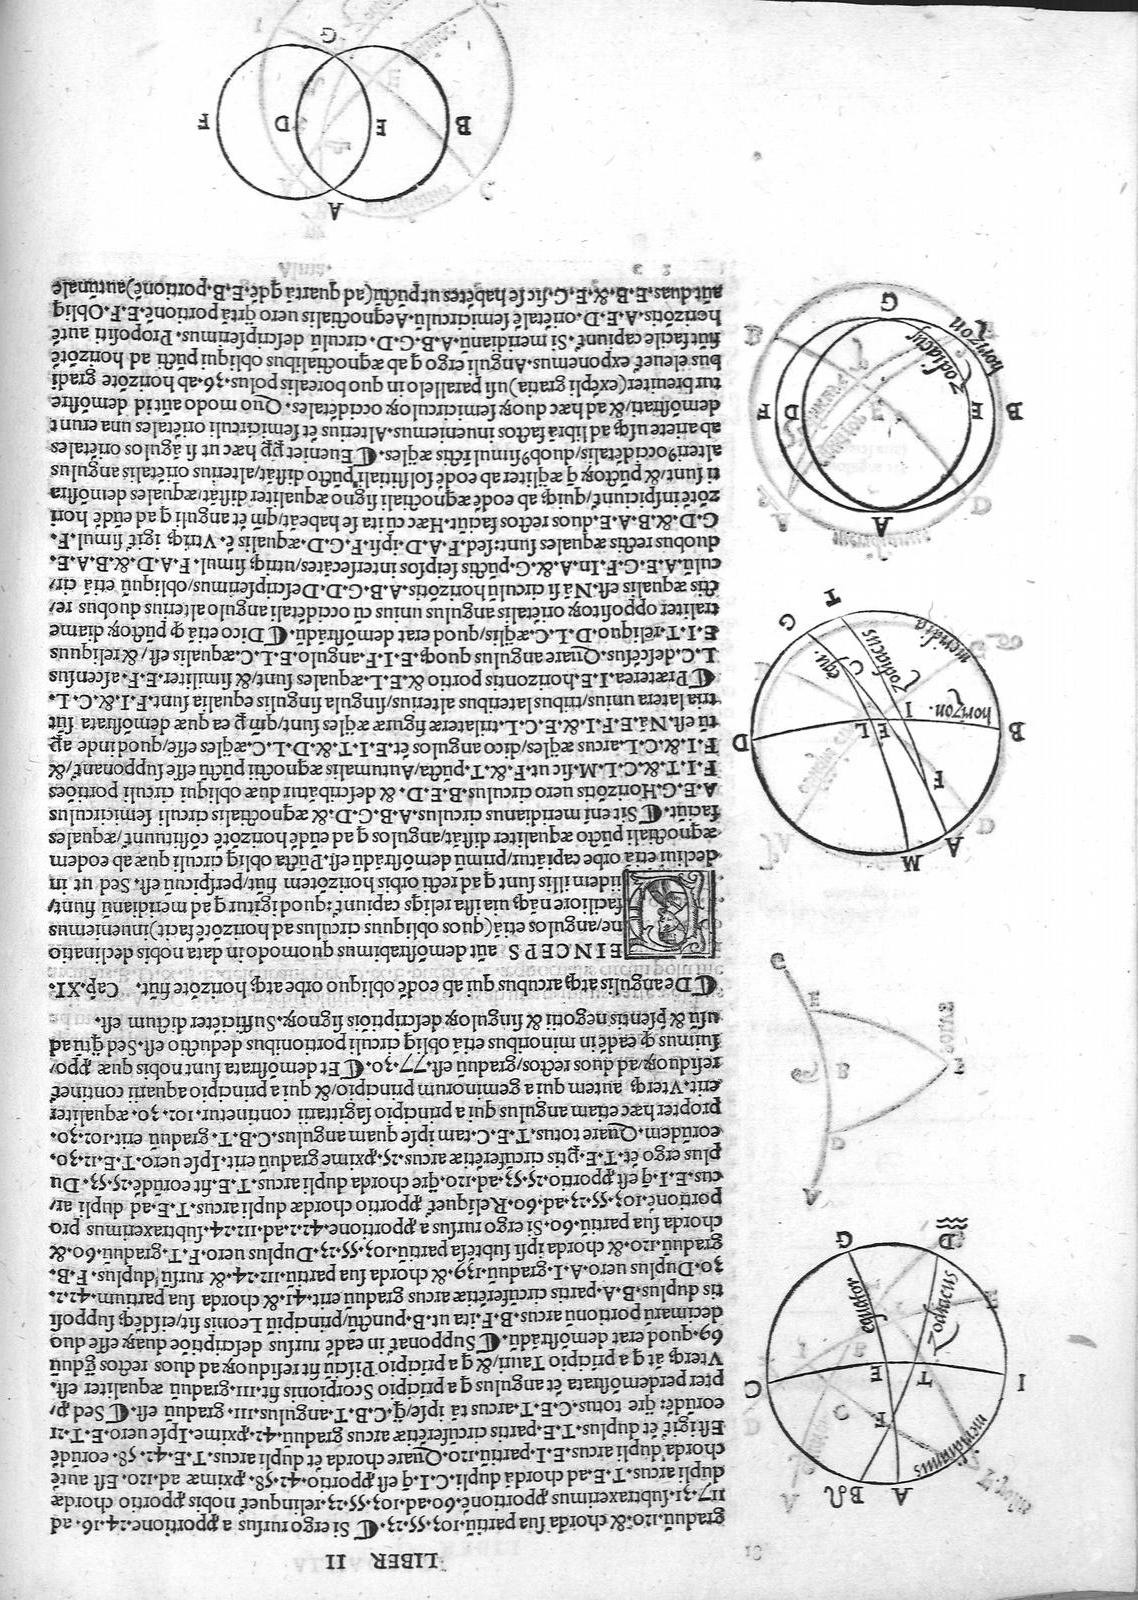 LIBER II
graduū.120.& chorda sua partiū.103.55.23.⁌ Si ergo rursus a ꝓportione.24.16.ad
117.31.subtraxerimus ꝓportionē.60.ad.103.55.23.relinquet̃ nobis ꝓportio chordæ
dupli arcus.T.E.ad chordā dupli.C.I.q̃ est ꝓportio.42.58.ꝓximæ ad.120.Est autē
chorda dupli arcus.E.I.partiū.120.Quare chorda ēt dupli arcus.T.E.42.58.eorūdē
Est igit̃ ēt duplus.T.E.partis circūferētiæ arcus graduū.42.ꝓxime.Ipse uero.E.T.21
eorūdē.q̄re totus.C.E.T.arcus tā ipse/q̃.C.B.T.angulus.111.graduū est.⁌ Sed ꝓ/
pter perdemōstrata ēt angulus q a pricipio Scorpionis fit.111.graduū æqualiter est.
Vterq; āt q a pricipio Tauri/& q a pricipio Pisciū fit residuoꝝ ad duos rectos graduū
69.quod erat demōstrādū.⁌ Supponat̃ in eadē rursus descriptiōe duaꝝ esse duo
decimarū portionū arcus.B.F.ita ut.B.punctū/principiū Leonis sit/eisdēq; suppositi
tis duplus.B.A.partis circūferētiæ arcus graduū erit.41.& chorda sua partium.42.2.
30.Duplus uero.A.I.graduū.139.& chorda sua partiū.112.24.& rursū duplus.F.B.
graduū.120.& chorda ipsi subtēsa partiū.103.55.23.Duplus uero.F.T.graduū.60.&
chorda sua partiū.60.Si ergo rursus a ꝓportione.42.2.ad.112.24.subtraxerimus pro
portionē.103.55.23.ad.60.Reliquet̃ ꝓportio chordæ dupli arcus.T.E.ad dupli ar/
cus.E.I.q̃ est ꝓportio.25.53.ad.120.q̄re chorda dupli arcus.T.E.fit eorūdē.25.53.Du
plus ergo ēt.T.E.ptis circūferētiæ arcus.25.ꝓxime graduū erit.Ipse uero.T.E.12.30.
eorūdem.Quare totus.T.E.C.tam ipse quam angulus.C.B.T.graduū erit.102.30.
propter hæc etiam angulus qui a principio sagittarii continetur.102.30.æqualiter
erit.Vterq; autem qui a geminorum principio/& qui a principio aquarii continet̃
residuoꝝ/ad duos rectos/graduū est.77.30.⁌ Et demōstrata sunt nobis quæ ꝓpo/
suimus q; eadē in minoribus etiā obliq circuli portionibus deductio est.Sed q̃tū ad
usū & pn̄tis negotii & singuloꝝ descriptiōis signoꝝ.Sufficiēter dictum est.
⁌ De angulis atq; arcubus qui ab eodē obliquo orbe atq; horizōte fiūt. Cap.XI.
DEINCEPS aūt demōstrabimus quomodo in data nobis declinatio
ne/angulos etiā(quos obliquus circulus ad horizōtē facit)inueniemus
faciliore nāq; uia ista reliqs capiunt̃:quod igitur q ad meridianū fiunt/
iidem illis sunt q ad recti orbis horizōtem fiūt/perspicuū est. Sed ut in
decliui etiā orbe capiātur/primū demōstrādū est.Pūcta obliq circuli quæ ab eodem
æqnoctiali pūcto æqualiter distāt/angulos q ad eūdē horizōtē cōstituunt̃/æquales
faciūt.⁌ Sit eni meridianus circulus.A.B.G.D.& æqnoctialis circuli semicirculus
A.E.G.Horizōtis uero circulus.B.E.D.& describātur duæ obliqui circuli portiōes
F.I.T.& C.L.M.sic ut.F.& T.pūcta/Autumalis æqnoctii pūctū esse supponant̃/&
F.I.& C.L.arcus æqles/dico angulos ēt.E.I.T.& D.L.C.æqles esse/quod inde ap
tū est.Nā.E.F.I.& E.C.L.trilateræ figuræ æqles sunt/qm̄ p ea quæ demōstrata sūt
tria latera unius/tribus lateribus alterius/singula singulis equalia sunt.F.I.& C.L.
⁌ Præterea.I.E.horizontis portio & E.L.æquales sunt/& similiter.E.F.ascensus
L.C.descēsus.Quare angulus quoq; E.I.F.angulo.E.L.C.æqualis est/& reliquus
E.I.T.reliquo.D.L.C.æqlis/quod erat demōstrādū.⁌ Dico etiā q; pūctoꝝ diame
traliter oppositoꝝ oriētalis angulus unius cū occidētali angulo alterius duobus re/
ctis æqualis est.Nā si circulū horizōtis.A.B.G.D.Descripserimus/obliquū etiā cir/
culū.A.E.G.F.In.A.& G.pūctis seipsos intersecātes/utriq; simul.F.A.D.& B.A.E.
duobus rectis æquales sunt:sed.F.A.D.ipsi.F.G.D.æqualis ē.Vtriq; igit̃ simul.F.
G.D.& B.A.E.duos rectos faciūt.Hæc cū ita se habeāt/qm̄ ēt anguli q ad eūdē hori
zōtē inspiciunt̃/quiq; ab eodē æqnoctiali signo æqualiter distāt/æquales demōstra
ti sunt/& pūctoꝝ q æqliter ab eodē solstitiali pūcto distāt/alterius oriētalis angulus
alteriꝰ occidētalis/duobꝰ simul rectis æqles.⁌ Eueniet pp hæc ut si āgulos oriētales
ab ariete usq; ad librā factos inueniemus.Alterius ēt semicirculi oriētales una erunt
demōstrati/& ad hæc duoꝝ semicirculoꝝ occidētales. Quo modo aūt id demōstre
tur breuiter(exēpli gratia)usi parallelo in quo borealis polus.36.ab horizōte gradi
bus eleuet̃ exponemus.Anguli ergo q ab æqnoctialibus obliqui pūctis ad horizōtē
fiūt facile capiunt̃.Si meridianū.A.B.G.D. circulū descripserimus. Propositi autē
horizōtis.A.E.D.oriētalē semicirculū.Aeqnoctialis uero q̄rtā portionē.E.F.Obliq
aūt duas.E.B.& E.G.sic se habētes ut pūctū(ad quartā qdē.E.B.portionē)autūnale
A
B
meridianus
F
I
T
E
C
Zodiacus
equator
D
G
M
A
F
B
horizon.
I
E
L
D
meridia
zodiacus
equ.
C
G
T
A
E
B
D
F
Zodiacus
horizon
G
A
B
E
D
F
G